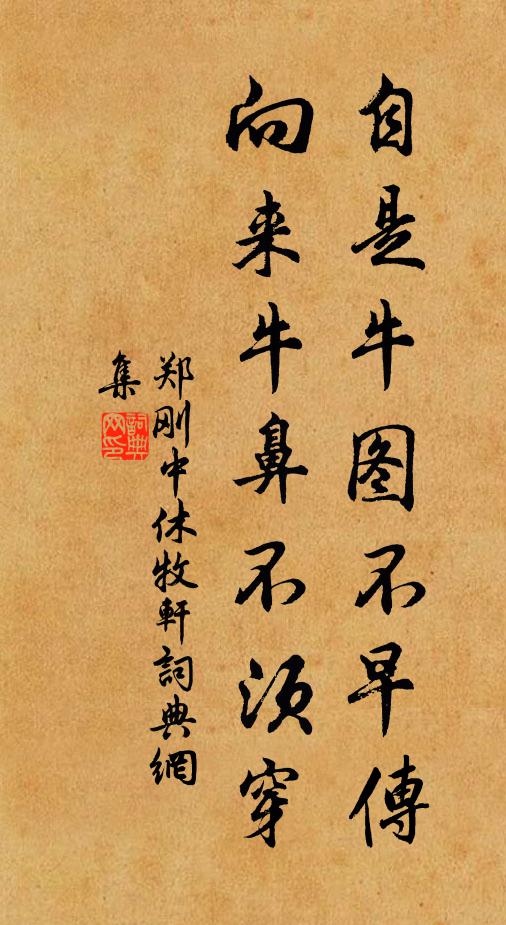 自是牛图不早傳
向来牛鼻不须穿
郑刚中休牧軒詞典網
集
詞典网印